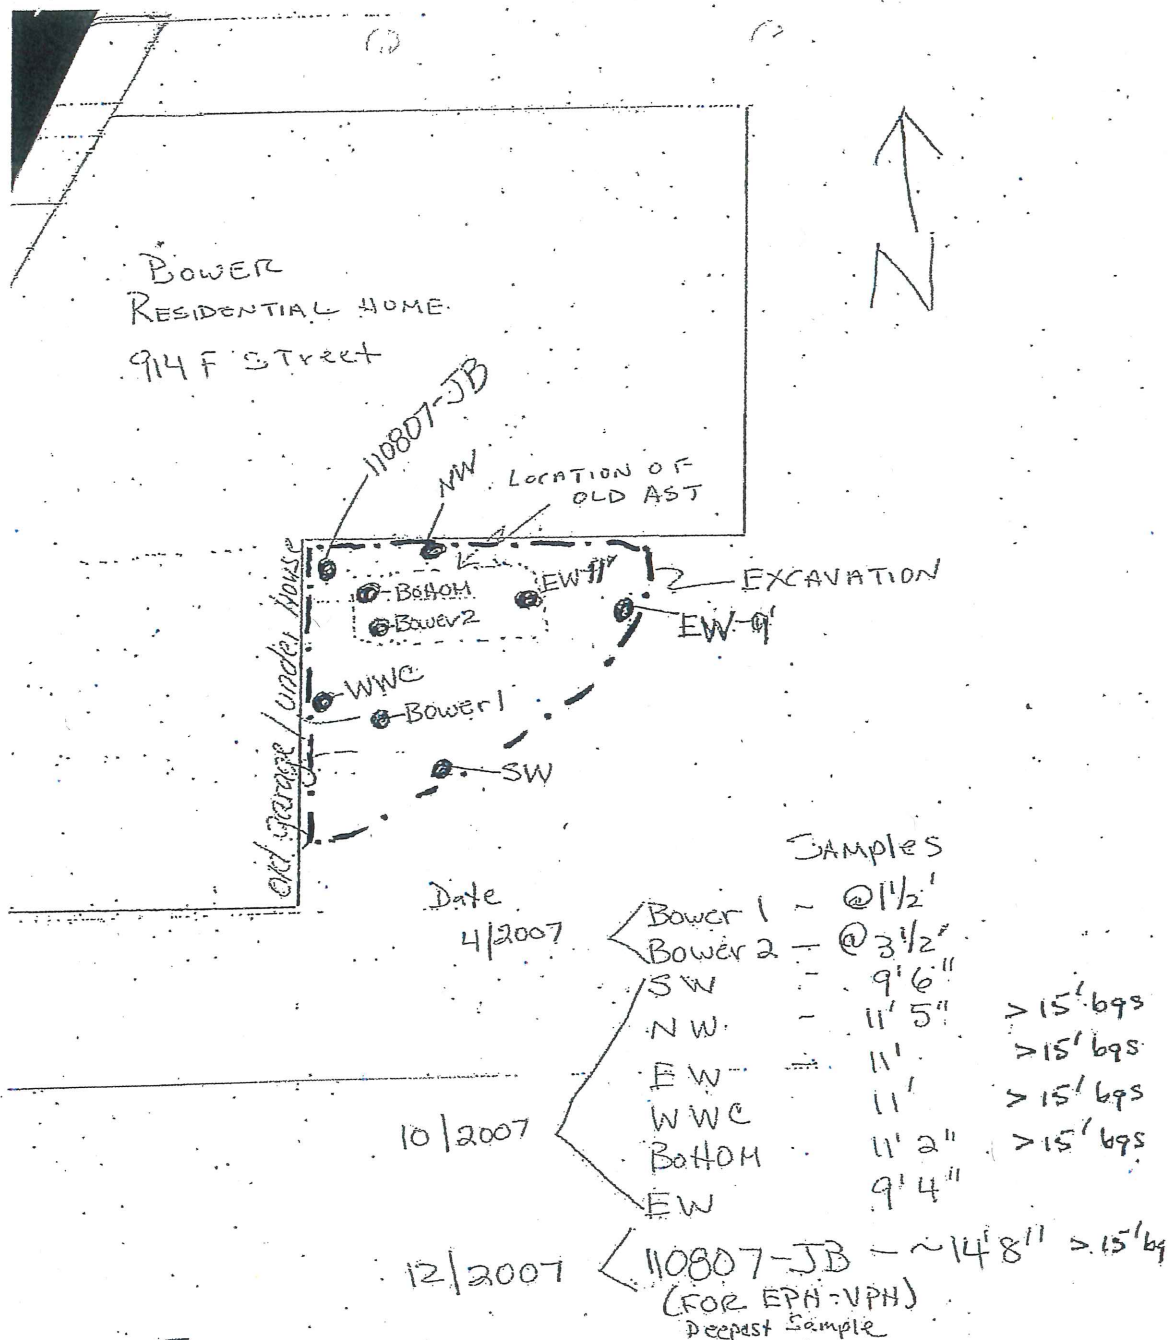 BOWER
RESIDENTIAL HOME
914 F STreet
N
110807-JB
NW
LOCATION OF
OLD AST
EW 11'
EXCAVATION
BOTTOM
Bower 2
EW-9'
WWC
Bower 1
SW
old garage / under House
SAMPles
Date
4/2007
Bower 1 - @1 1/2'
Bower 2 - @ 3 1/2'
10/2007
SW - 9'6"
NW - 11'5" >15' bgs
EW - 11' >15' bgs
WWC 11' >15' bgs
BOTTOM 11'2" >15' bgs
EW 9'4"
12/2007
110807-JB - ~14'8" >15' bg
(FOR EPH-VPH)
Deepest Sample